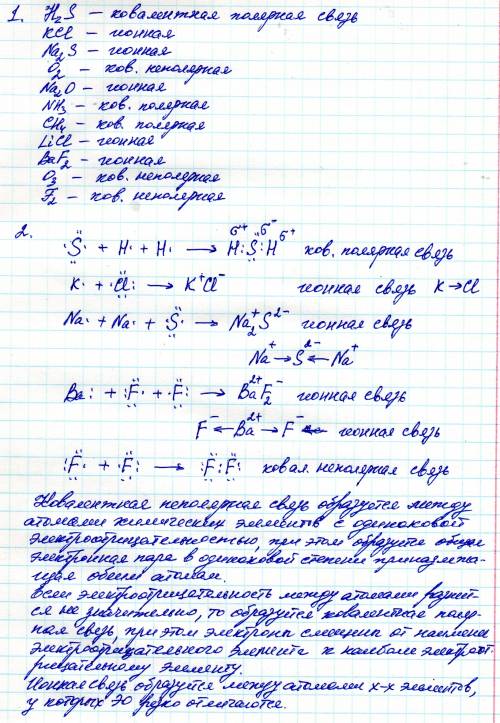 1. H₂S – ковалентная полярная связь
KCl – ионная
Na₂S – ионная
O₂ – ков. неполярная
Na₂O – ионная
NH₃ – ков. полярная
CH₄ – ков. полярная
LiCl – ионная
BaF₂ – ионная
O₃ – ков. неполярная
F₂ – ков. неполярная
2. ·S· + H· + H· → H:S:H ков. полярная связь
K· + ·Cl: → K⁺Cl⁻ ионная связь K→Cl
Na· + Na· + ·S· → Na₂⁺S²⁻ ионная связь
Na⁺→S²⁻←Na⁺
Ba: + ·F: + ·F: → Ba²⁺F₂⁻ ионная связь
F⁻←Ba²⁺→F⁻ ← ионная связь
:F· + ·F: → :F:F: ковал. неполярная связь
Ковалентная неполярная связь образуется между
атомами химических элементов с одинаковой
электроотрицательностью, при этом образуется общая
электронная пара в одинаковой степени принадлежа-
щая обеим атомам.
Если электроотрицательность между атомами разнит-
ся не значительно, то образуется ковалентная поляр-
ная связь, при этом электроны смещены от наименее
электроотрицательного элемента к наиболее электроот-
рицательному элементу.
Ионная связь образуется между атомами х-х элементов,
у которых ЭО резко отличаются.